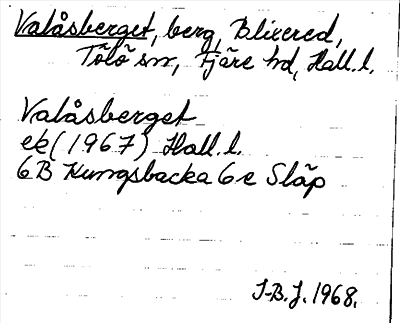 Valåsberget, berg, Blixered,
Tölö sn, Fjäre hd, Hall. l.
Valåsberget
ek (1967) Hall. l.
6B Kungsbacka 6e Släp
J-B. J. 1968.